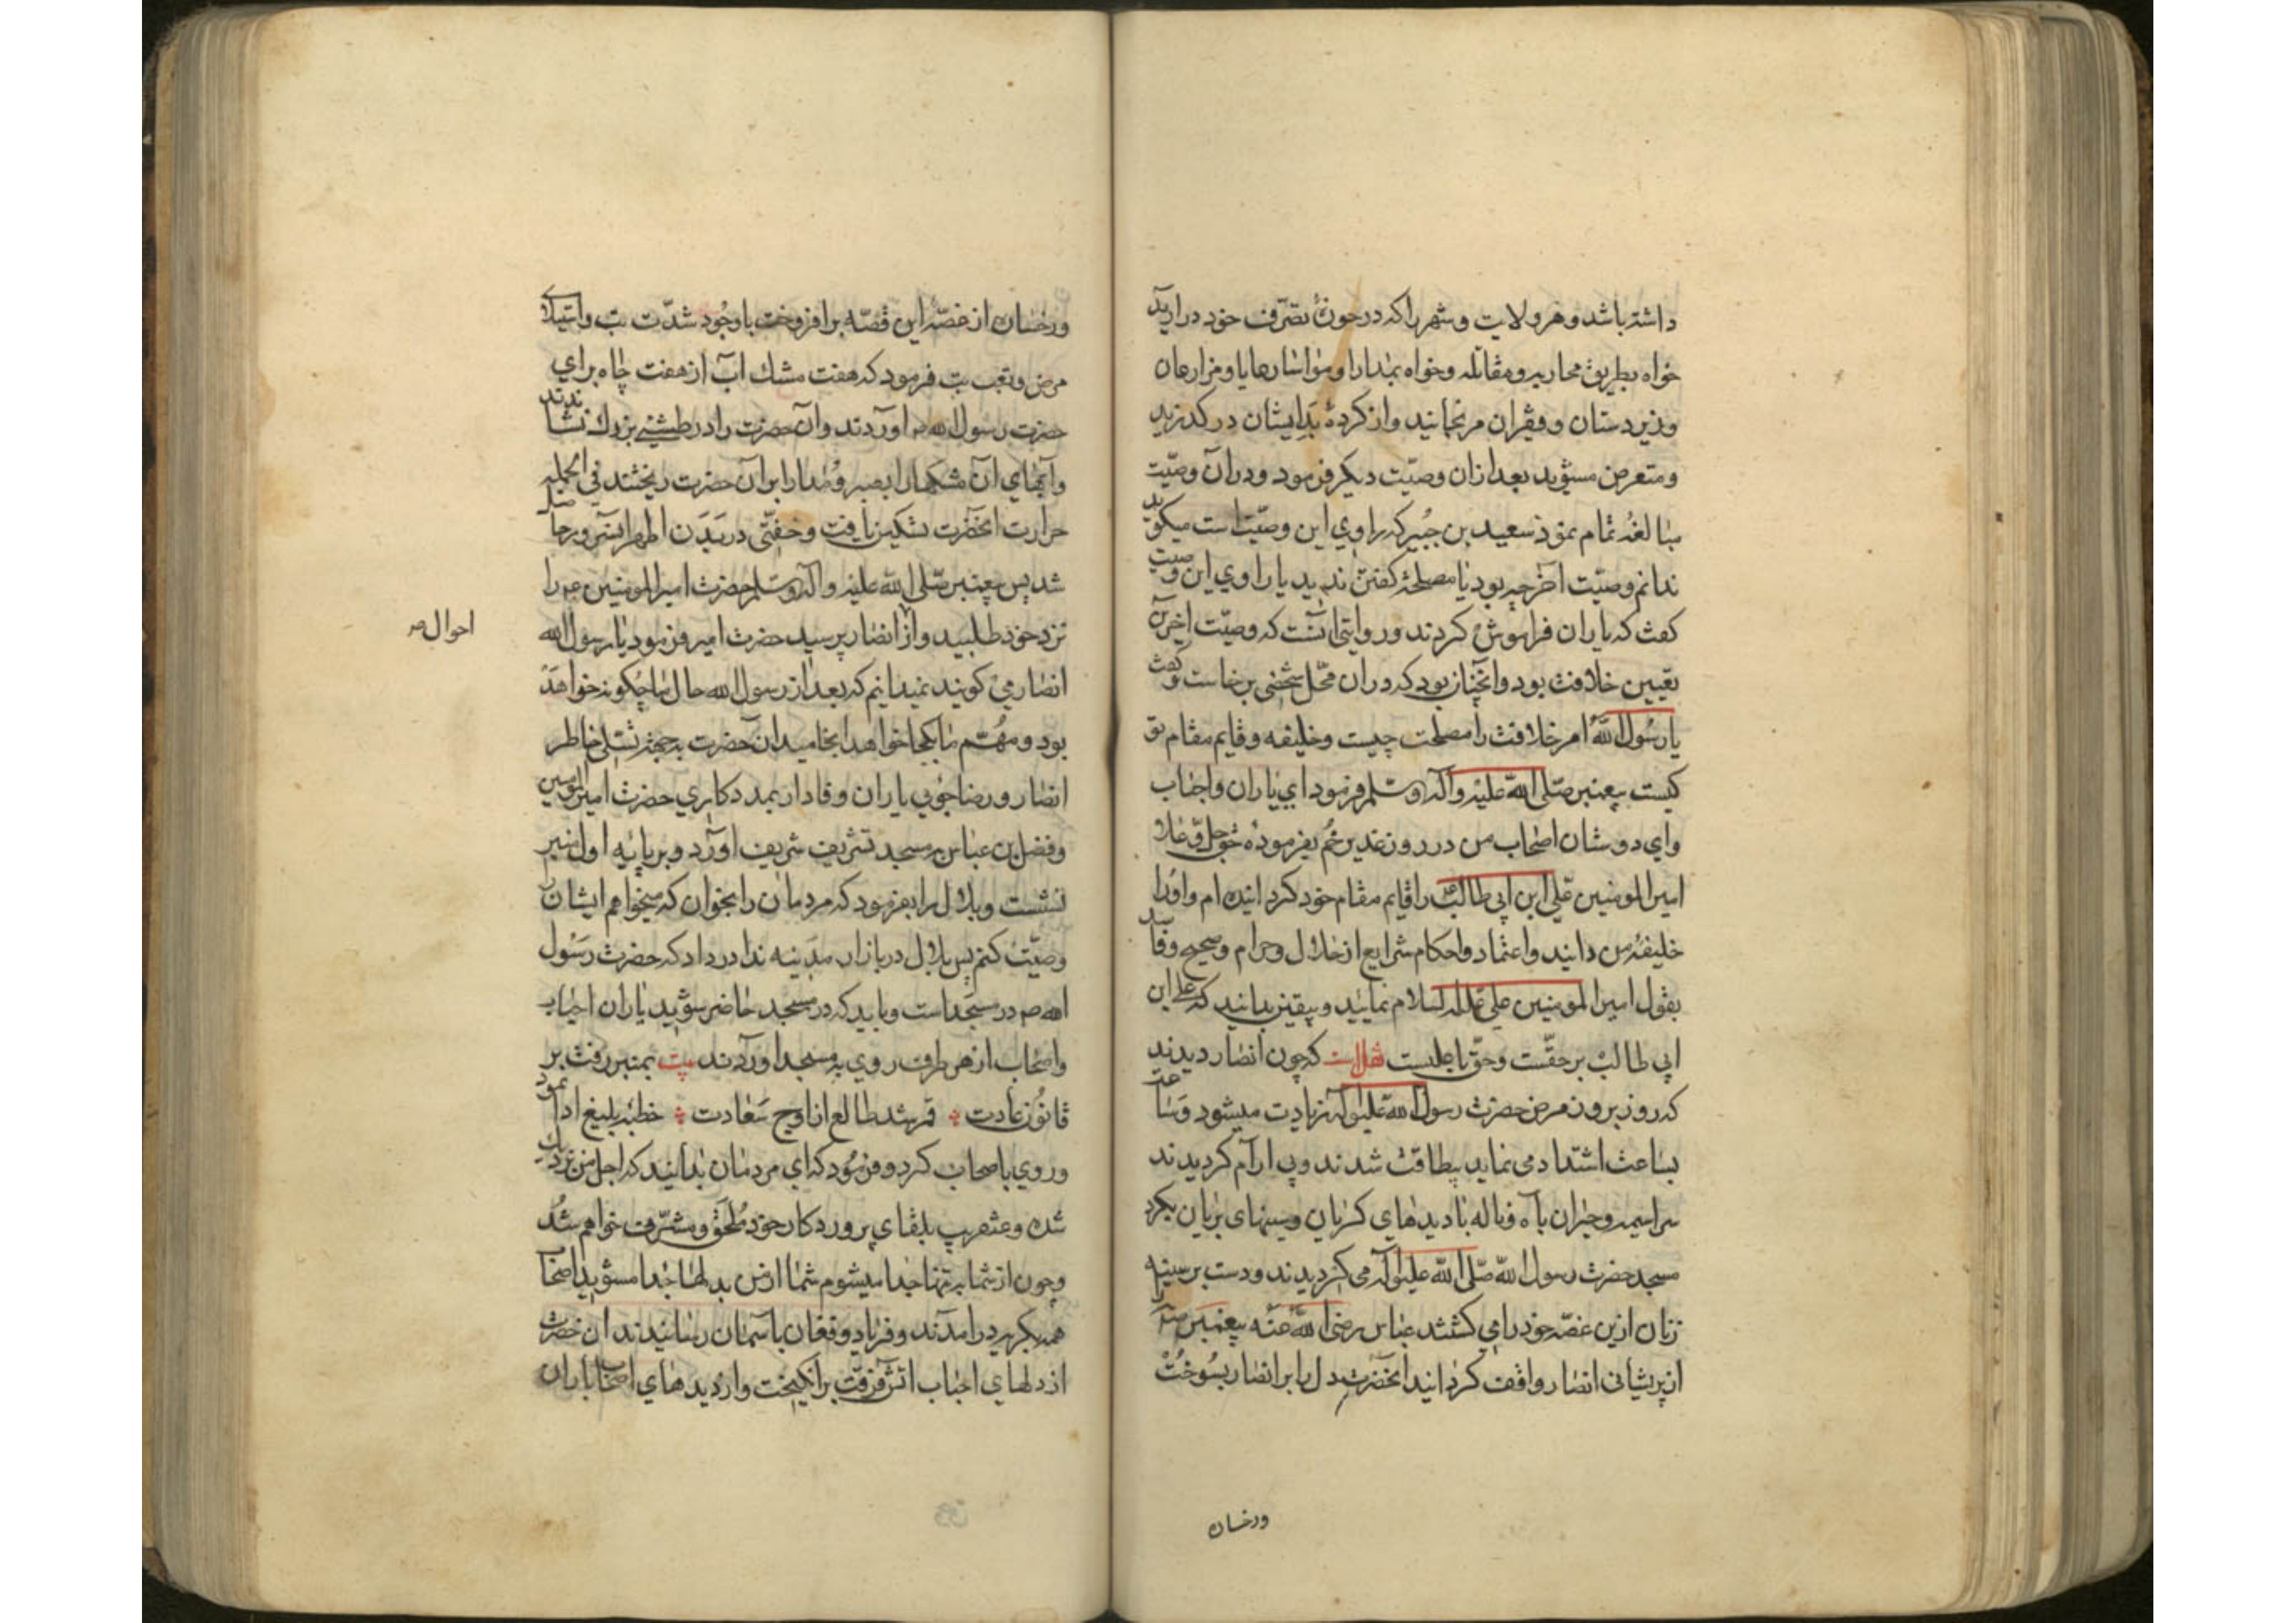 داشته باشد و هر ولایت و شهر را که در حوزهٔ تصرّف خود در ارید
خواه بطریق محاربه و مقاتله و خواه بمدارا و مواسا رعایا و مزارعان
و زیردستان و فقیران مرنجانید و از کردهٔ بد ایشان در کذرید
و متعرض مشوید بعد ازان وصیّت دیکر فرمود و دران وصیّت
مبالغه تمام نمود سعید بن جُبیر که راوی این وصیّت است میکوید
ندانم وصیّت آخر چه بود یا مصلحة کفتن ندید یا راوی این وصیت
کفت که یاران فراموش کردند و روایتی انست که وصیّت اخرین
تعیین خلافت بود و انچنان بود که دران محّل شخصی برخاست و کفت
یا رسُول اللّه امر خلافت را مصلحت چیست و خلیفه و قایم مقام تو
کیست پیغمبر صلّی اللّه علیه و آله و سلم فرمود ای یاران و احباب
و ای دوستان اصحاب من در روز غدیر خُم بفرمودهٔ حق جلّ و علا
امیر المومنین علی ابن ابی طالب را قایم مقام خود کردانیده ام و اورا
خلیفهٔ من دانید و اعتماد و احکام شرایع از حلال و حرام و صحیح و فاسد
بقول امیر المومنین علی علیه السلام نمایید و بیقین بدانید که علی ابن
ابی طالب بر حقّست و حقّ با علیست نقلست که چون انصار دیدند
که روز بروز مرض حضرت رسول اللّه علیه و آله زیادت میشود و ساعت
بساعت اشتداد می نماید بیطاقت شدند و بی آرام کردیدند
سراسیمه و حیران با آه و ناله با دیدهای کریان و سینهای بریان بکرد
مسجد حضرت رسول اللّه صلّی اللّه علیه و آله می کردیدند و دست بر سینه
زنان ازین غصّه خود را می کشتند عباس رضی اللّه عنه پیغمبر را
از پریشانی انصار واقف کردانید انحضرت دل را بر انصار بسُوخت
ورخسان
ورخسان از غصّهٔ این قصّه برافروخت با وجُود شدّت تب و استیلای
مرض و تعب تب فرمود که هفت مشك اب از هفت چاه برای
حضرت رسول الله ص اوردند و آن حضرت را در طشتی بزرك نشاندند
و آبهای آن مشکها را بصبر و مُدارا بران حضرت ریختند فی الجمله
حرارت انحضرت تسکین یافت و خفّتی در بَدَن اطهر انسرور حاصل
شد پس پیغمبر صلّی اللّه علیه و آله و سلم حضرت امیر المومنین ع را
نزد خود طلبید و از انصار پرسید حضرت امیر فرمود یا رسول الله
انصار می کویند نمیدانیم که بعد از رسول الله حال ما چکونه خواهد
احوال ص
بود و مهّم ما بکجا خواهد انجامید ان حضرت بجهة تسلی خاطر
انصار و رضا جُویی یاران وفادار بمددکاری حضرت امیر المومنین
و فضل بن عباس بمسجد تشریف شریف اورد و بر پایه اول منبر
نشست و بلال را بفرمود که مردمان را بخوان که میخواهم ایشان را
وصیّت کنم پس بلال در بازار مدینه ندا در داد که حضرت رسُول
الله ص در مسجد است و باید که در مسجد حاضر شوید یاران احباب
و اصحاب از هر طرف روی به مسجد اوردند بیت بمنبر رفت بر
قانُون عادت قمر شد طالع از اوج سَعادت خطبه بلیغ ادا نمود
و روی باصحاب کرد و فرمُود که ای مردمان بدانید که اجل من نزدیك
شده و عنقریب بلقای پروردکار خود مُلحق و مشرّف خواهم شد
و چون از شما به تنها جدا میشوم شما از من بدلها جدا مشوید اصحاب
همه بکریه درامدند و فریاد و فغان باسمان رسانیدند ان حضرت
از دلهای احباب اتش فرقت برانکیخت و از دیدهای اصحاب باران